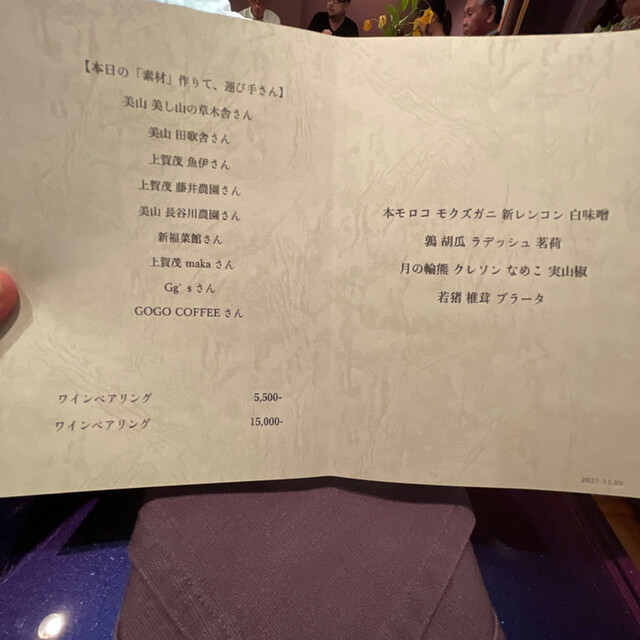 【本日の「素材」作りて、運び手さん】
美山 美し山の草木舎さん
美山 田歌舎さん
上賀茂 魚伊さん
上賀茂 藤井農園さん
美山 長谷川農園さん
新福菜館さん
上賀茂 maka さん
Gg's さん
GOGO COFFEE さん
ワインペアリング 5,500-
ワインペアリング 15,000-
本モロコ モクズガニ 新レンコン 白味噌
鶉 胡瓜 ラデッシュ 茗荷
月の輪熊 クレソン なめこ 実山椒
若猪 椎茸 ブラータ